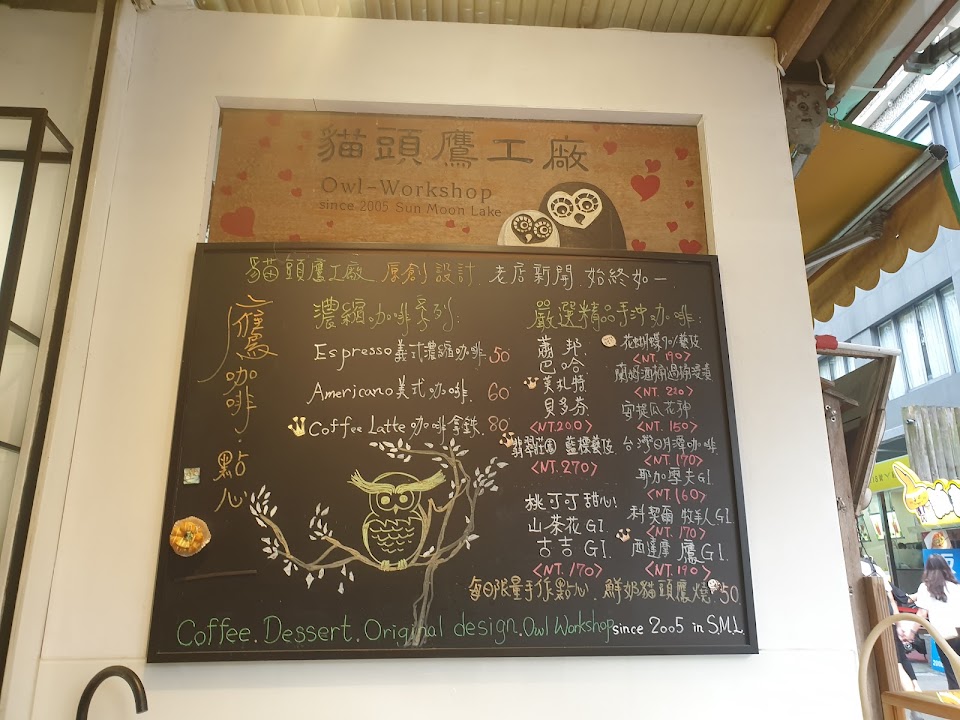 貓頭鷹工廠
Owl-Workshop
since 2005 Sun Moon Lake
貓頭鷹工廠 原創設計. 老店新開. 始終如一.
鷹咖啡.點心
濃縮咖啡系列:
Espresso義式濃縮咖啡. 50
Americano美式咖啡. 60
Coffee Latte咖啡拿鐵. 80
嚴選精品手沖咖啡:
蕭邦.
巴哈
莫札特.
貝多芬.
<NT.200>
翡翠莊園 藍標藝伎
<NT.270>
桃可可甜心.
山茶花G1.
古吉G1.
<NT.170>
花蝴蝶90+藝伎
<NT.190>
蘭姆酒
<NT.220>
安提瓜花神
<NT.150>
台灣日月潭咖啡
<NT.170>
耶加雪夫G1.
<NT.160>
科契爾 牧羊人G1.
<NT.170>
西達摩 鷹G1.
<NT.190>
每日限量手作點心. 鮮奶貓頭鷹燒. 50
Coffee. Dessert. Original design. Owl Workshop since 2005 in S.M.L.